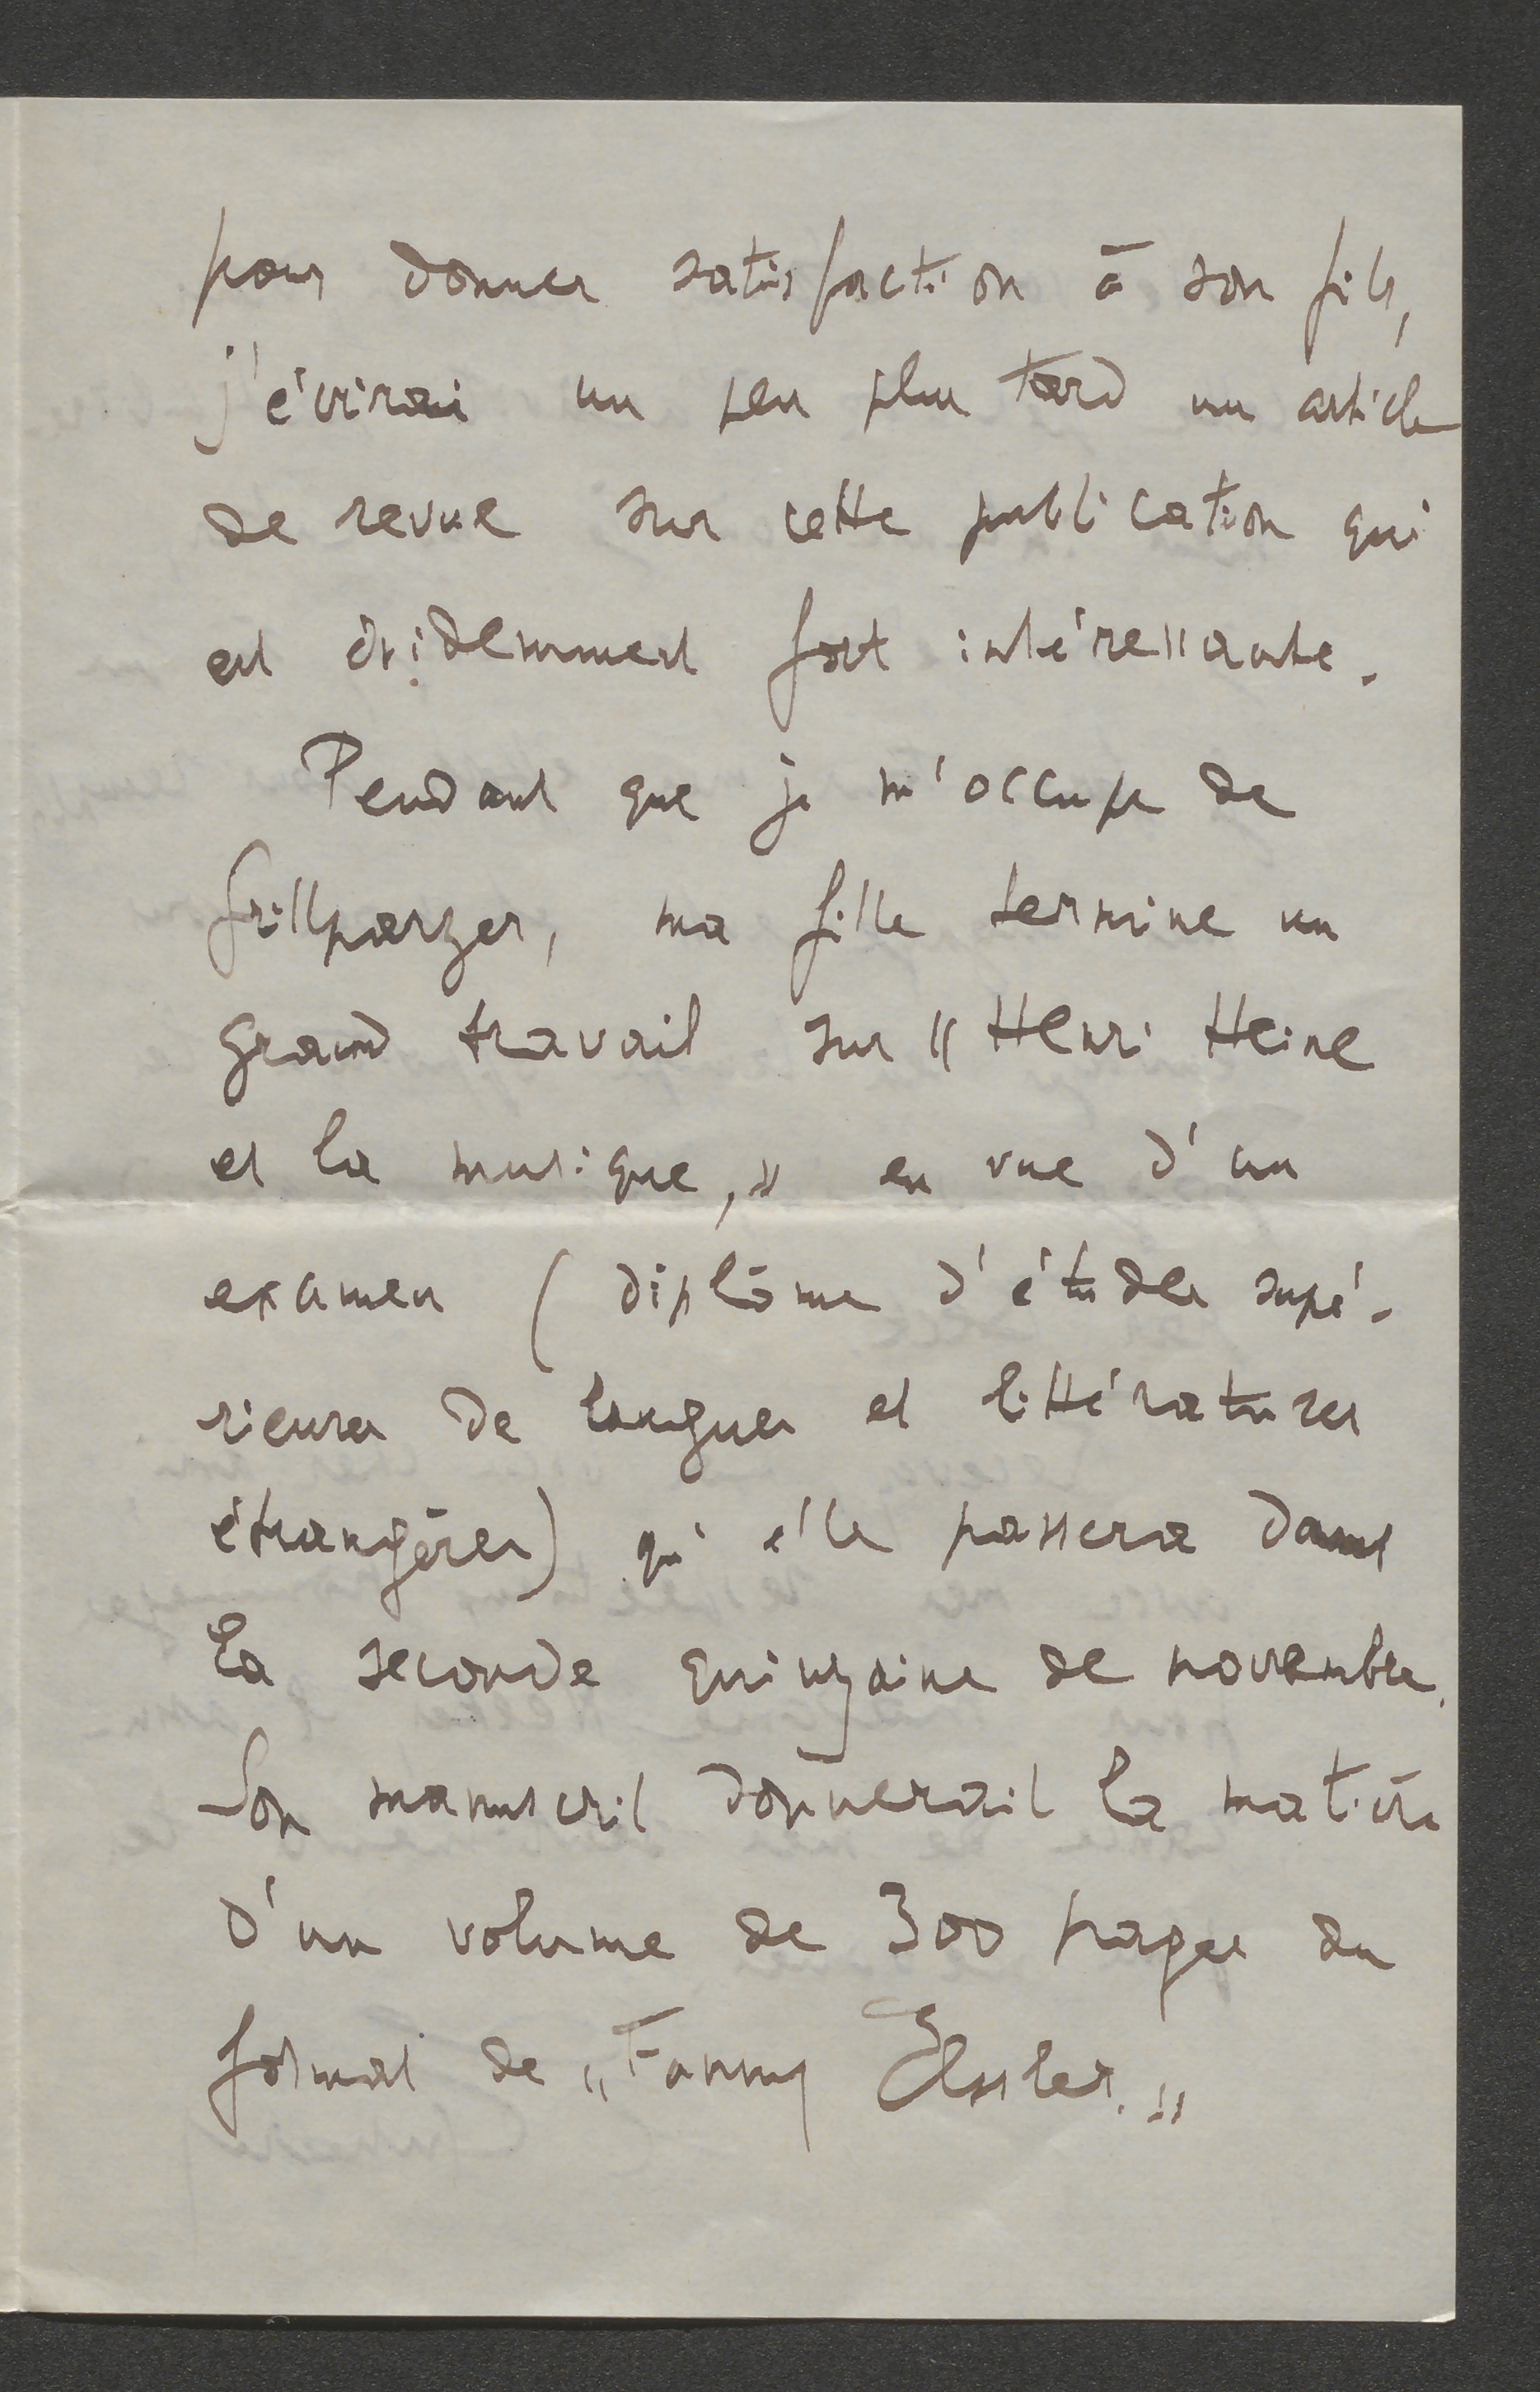 pour donner satisfaction à son fils,
j'écrirai un peu plus tard un article
de revue sur cette publication qui
est évidemment fort intéressante.
Pendant que je m'occupe de
Grillparzer, ma fille termine un
grand travail sur "Henri Heine
et la musique," en vue d'un
examen (diplôme d'études supé-
rieures de langues et littératures
étrangères) qu'elle passera dans
la seconde quinzaine de novembre.
Son manuscrit donnerait la matière
d'un volume de 300 pages du
format de "Fanny Elssler."